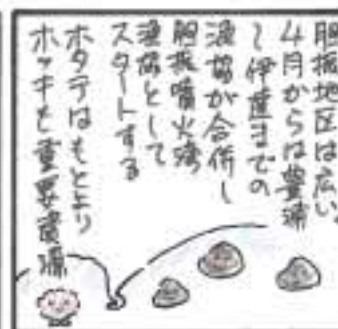 胆振地区は広い。
4月からは豊浦
〜伊達までの
漁協が合併し
胆振噴火湾
漁協として
スタートする
ホタテはもとより
ホッキも重要資源